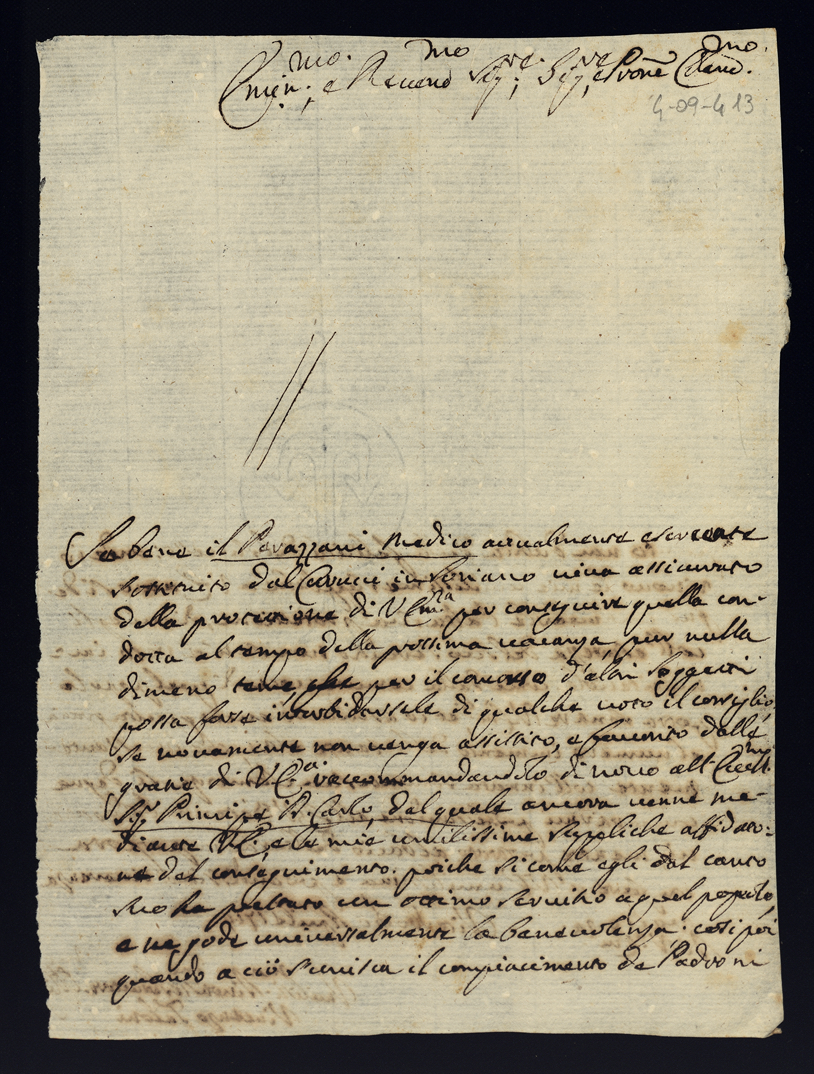 Emin.mo, e Reveno.mo Sig.re, Sig.re, e Prone Colend.mo
4-09-413
Se bene il Pavazzani Medico actualmente esercente
sostituito dal Carucci in Soriano viva assicurato
della protezzione di V. Em.za per conseguire quella con-
dotta al tempo della prossima vacanza, pur nulla
dimeno teme che per il concorso d'altri Soggetti
possa forse intorbidarsele di qualche voto il consiglio,
se novamente non venga assistito, e favorito dalle
grazie di V. E.a raccommandandolo di novo all' Ecc.mo
Sig. Principe D. Carlo, dal quale ancora venne me-
diante V. E., e le mie umilissime suppliche affidato
ne del conseguimento. poiche si come egli dal canto
suo ha prestato un ottimo servitio a quel popolo,
e ne gode universalmente la benevolenza. così poi
quando a ciò s'unisca il compiacimento de Padroni